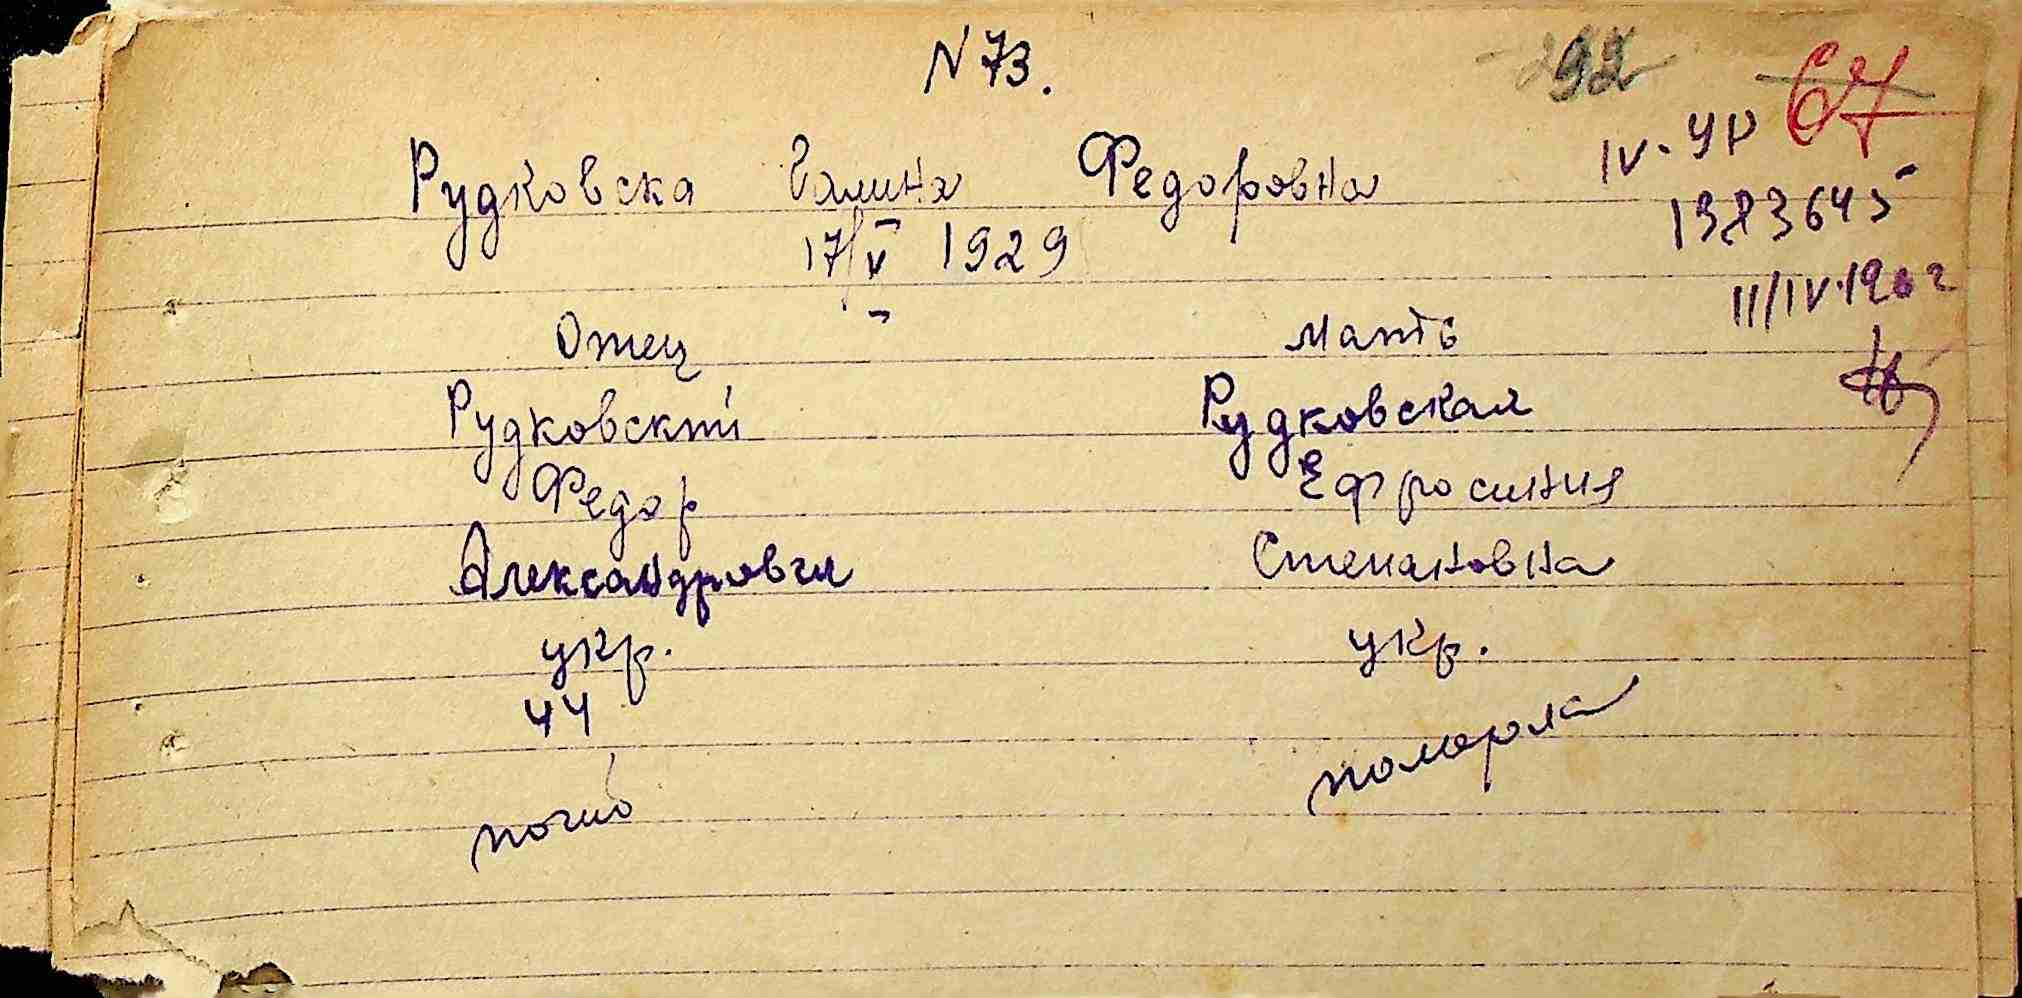 N 73.
292
67
IV-УР
1383645
Рудковска Галина Федоровна
17/V 1929
11/IV.196 г
Отец
Мать
Рудковский
Рудковская
Федор
Ефросиния
Александрович
Степановна
укр.
укр.
44
погиб
померла